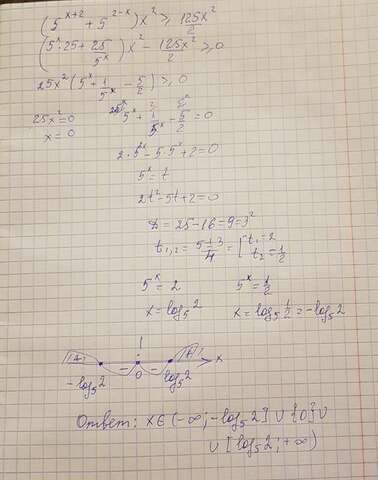 (5^{x+2} + 5^{2-x}) x² ≥ 125x²/2
(5^x·25 + 25/5^x) x² - 125x²/2 ≥ 0
25x² (5^x + 1/5^x - 5/2) ≥ 0
25x² = 0
x = 0
5^x + 1/5^x - 5/2 = 0
2·5^{2x} - 5·5^x + 2 = 0
5^x = t
2t² - 5t + 2 = 0
D = 25 - 16 = 9 = 3²
t_{1,2} = (5 ± 3)/4 = [t₁ = 2
t₂ = 1/2
5^x = 2 5^x = 1/2
x = log₅2 x = log₅ 1/2 = -log₅2
+ - - + x
-log₅2 0 log₅2
Ответ: x ∈ (-∞; -log₅2] ∪ {0} ∪
∪ [log₅2; +∞)